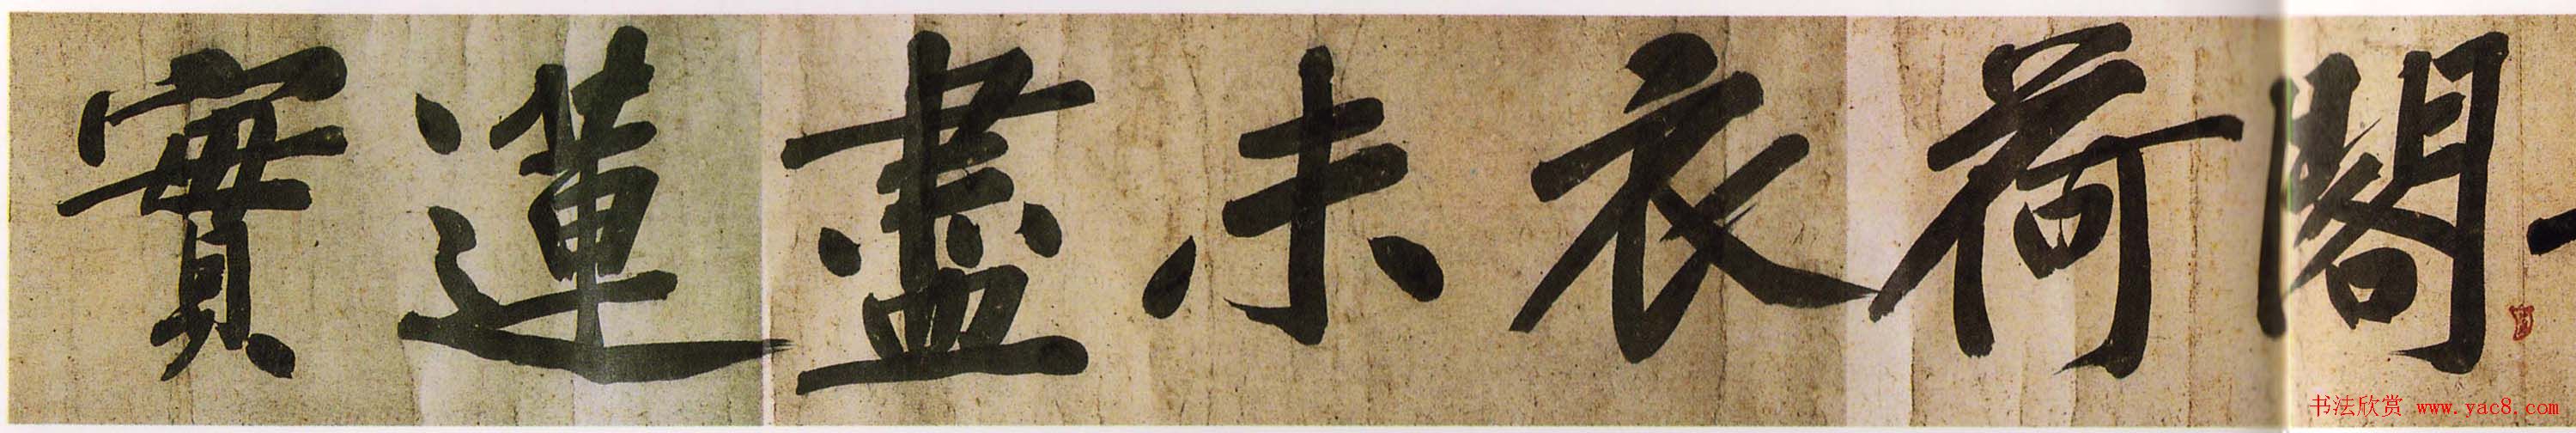 閣荷衣未盡蓮實
书法欣赏 www.yac8.com